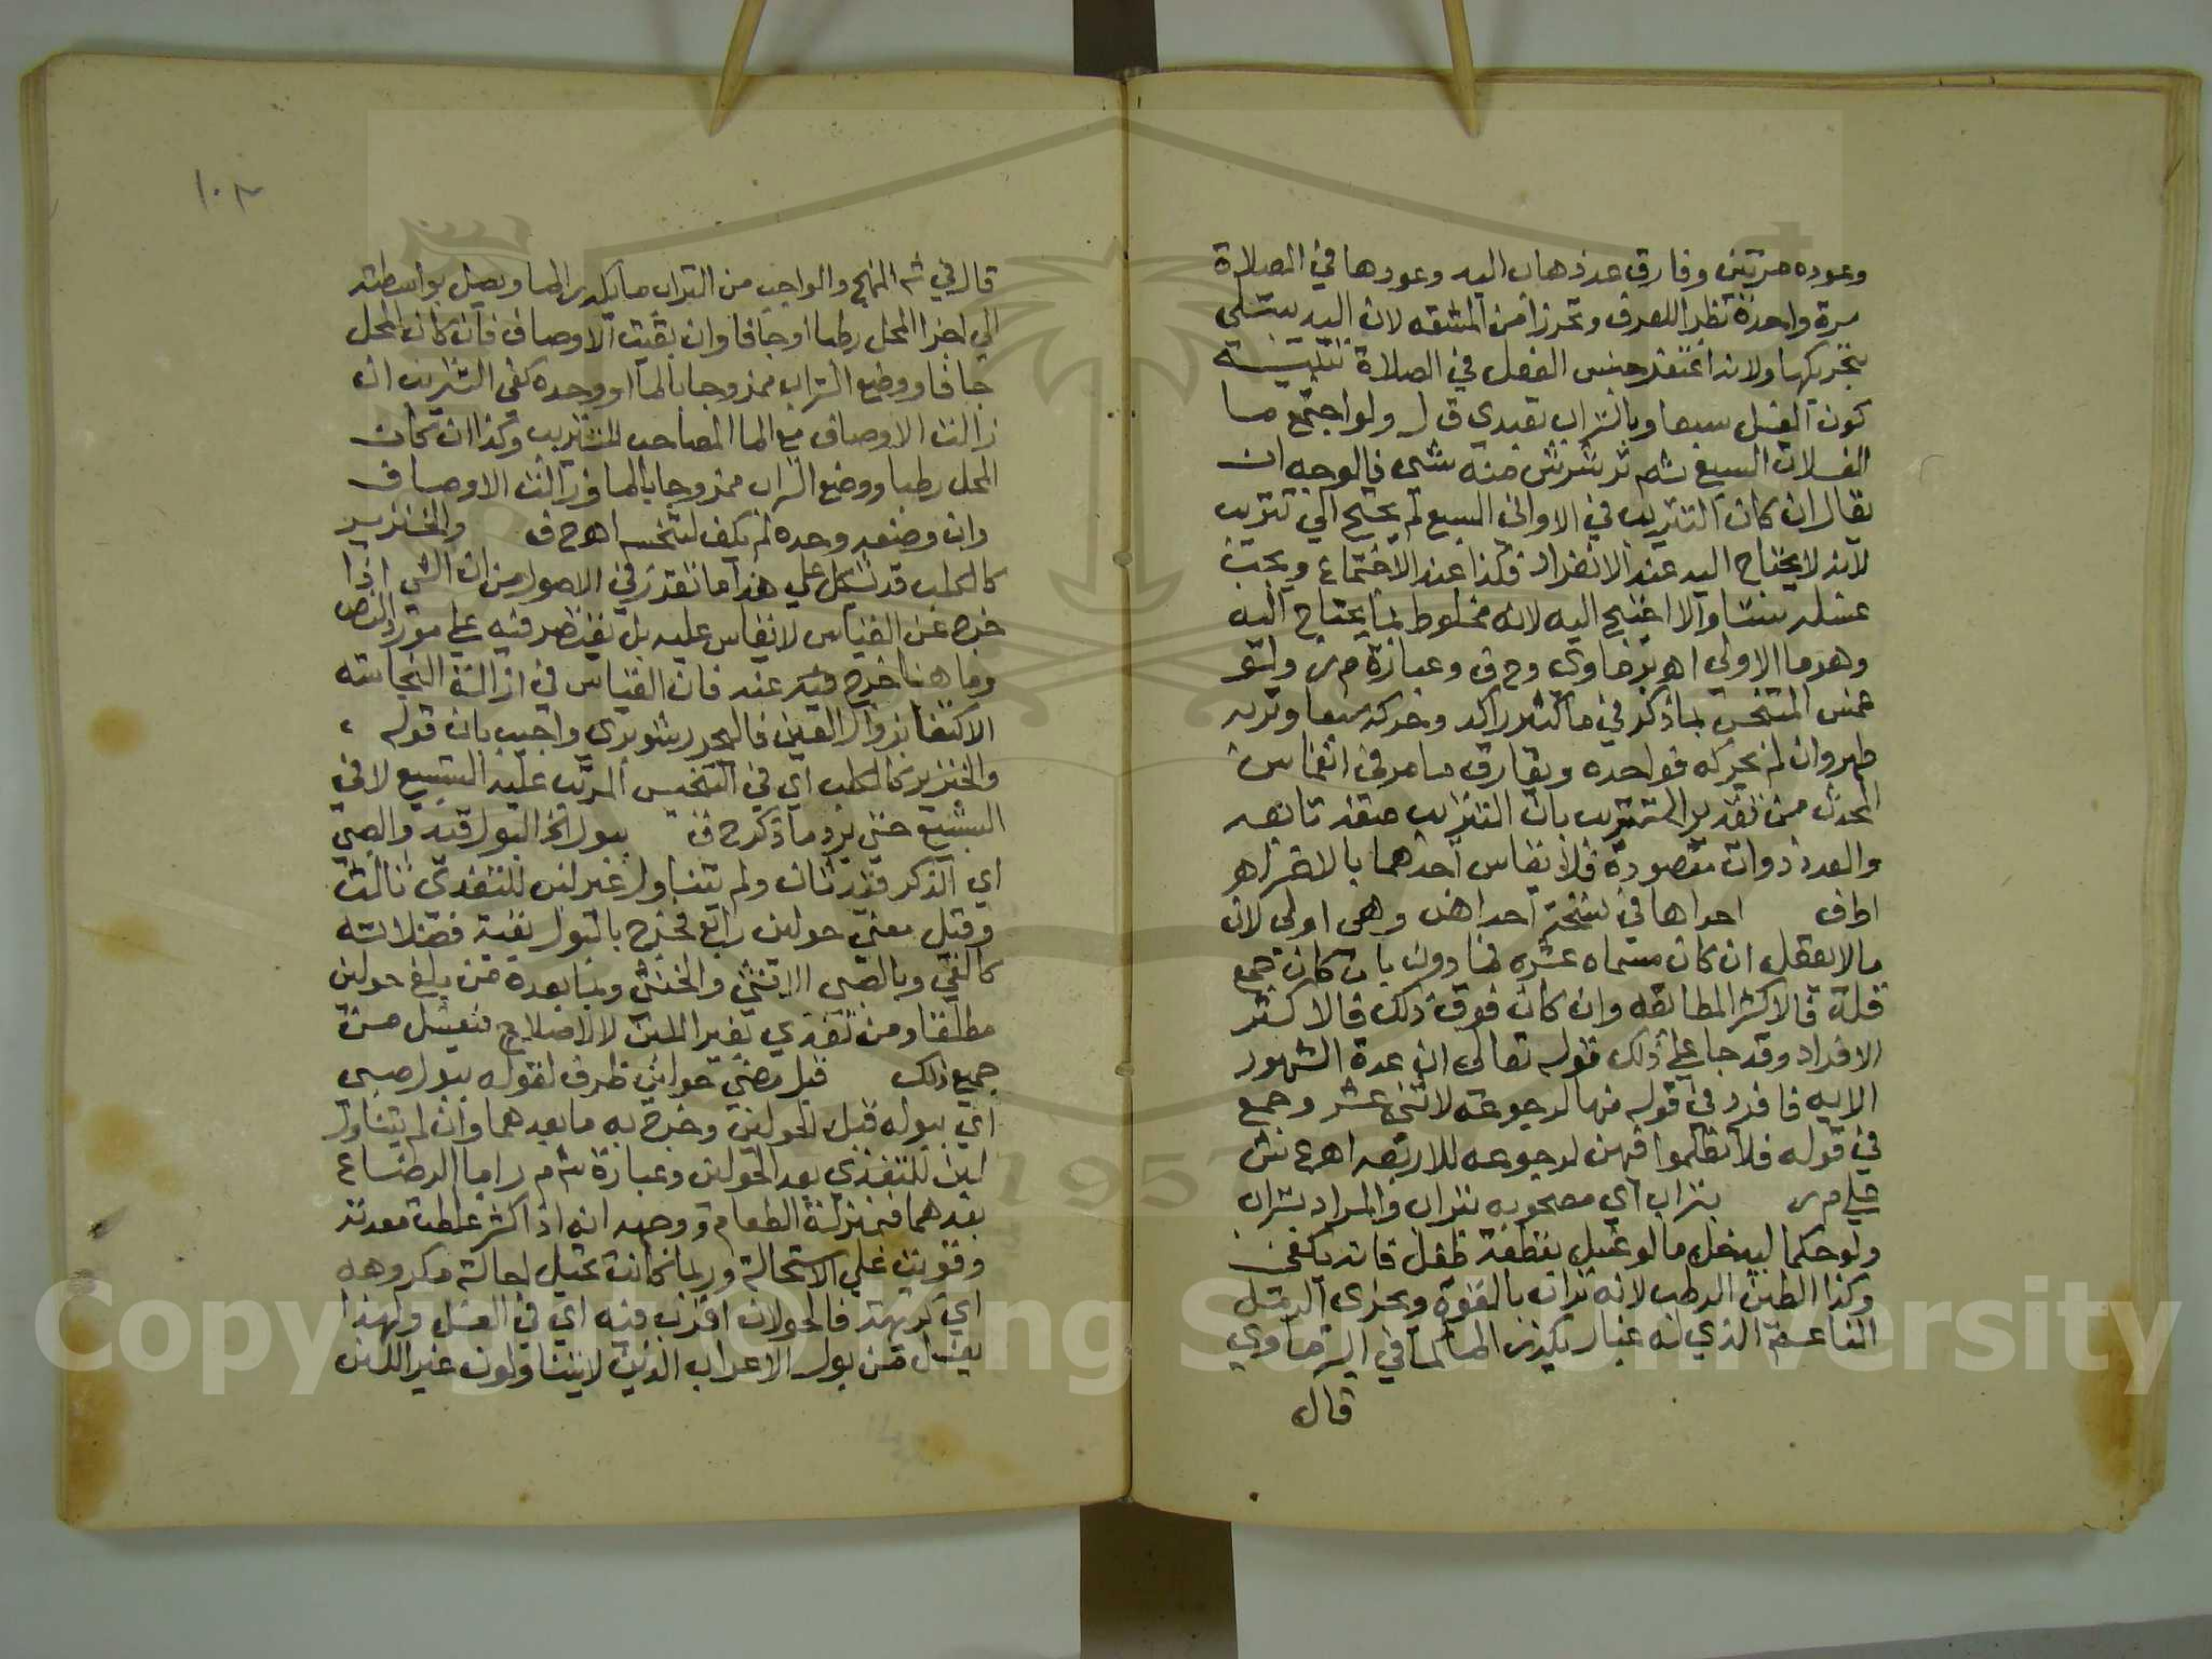 وعوده مرتين وفارق عد ذهاب اليد وعودها في الصلاة
مرة واحدة نظرا للعرف وتحرزا من المشقه لان اليد يبتلى
بتحريكها ولانه اغتفر جنس الفعل في الصلاة تنبيه
كون الغسل سبعا وبالتراب تعبدي ق ل ولو اجتمع ما
الغسلات السبع ثم ترشرش منه شى فالوجه ان
يقال ان كان التتريب في الاوالي السبع لم يحتج الي تتريب
لانه لا يحتاج اليه عند الانفراد فكذا عند الاجتماع ويجب
غسله ستا والا احتيج اليه لانه مخلوط بما يحتاج اليه
وهو ما الاولي اهـ برماوى وح ف وعبارة م ر ولو
غمس المتنجس بما ذكر في ما كثير راكد وحركه سبعا وتربه
طهر وان لم يحركه فواحده ويفارق ما مر في انغماس
المحدث من تقدير الترتيب بان الترتيب صفة تابعه
والعدد ذوات مقصودة فلا يقاس احدهما بالاخر اهـ
ا ط ف احداها في نسخة احداهن وهى اولى لان
ما لا يعقل ان كان مسماه عشره فما دون بان كان جمع
قلة فالاكثر المطابقه وان كان فوق ذلك فالاكثر
الافراد وقد جا علي ذلك قوله تعالى ان عدة الشهور
الايه فافرد في قوله منها لرجوعه لاثني عشر وجمع
في قوله فلا تظلموا فيهن لرجوعه للاربعه اهـ ع ش
علي م ر بتراب اي مصحوبه بتراب والمراد بتراب
ولو حكما ليدخل ما لو غسل بقطعة طفل فانه يكفى
وكذا الطين الرطب لانه تراب بالقوة ويجزى الرمل
الناعم الذي له غبار يكدر الما كما في البرماوي
قال
١٠٣
قال في ش المنهج والواجب من التراب ما يكدر الما ويصل بواسطته
الي اجزا المحل رطبا او جافا وان بقيت الاوصاف فان كان المحل
جافا ووضع التراب ممزوجا بالما او وحده كفى التتريب ان
زالت الاوصاف مع الما المصاحب للتتريب وكذا ان كان
المحل رطبا ووضع التراب ممزوجا بالما وزالت الاوصاف
وان وضعه وحده لم يكف لتنجسه اهـ ح ف والخنزير
كالكلب قد يشكل علي هذا ما تقرر في الاصول من ان الشي اذا
خرج عن القياس لا يقاس عليه بل يقتصر فيه علي مورد النص
وما هنا خرج فيه عنه فان القياس في ازالة النجاسة
الاكتفا بزوال العين فاليحرر شوبرى واجيب بان قوله
والخنزير كالكلب اي في التنجيس المرتب عليه التسبيع لا في
التسبيع حتى يرد ما ذكر ح ف ببول الخ البول قيد والصبي
اي الذكر قيد ثان ولم يتناول غير لبن للتغذى ثالث
وقبل مضي حولين رابع فخرج بالبول بقية فضلاته
كالقي وبالصبى الانثي والخنثى وبما بعده من بلغ حولين
مطلقا ومن تغذي بغير اللبن لا للاصلاح فيغسل من
جميع ذلك قبل مضي حولين ظرف لقوله ببول صبى
اي ببوله قبل الحولين وخرج به ما بعدهما وان لم يتناول
لبن للتغذي بعد الحولين وعبارة ش م ر اما الرضاع
بعدهما فبمنزلة الطعام ووجهه انه اذا كبر غلظت معدته
وقويت علي الاستحالة وربما كانت تحيل احالة مكروهه
اي كريهة فالحولان اقرب فيه اي في الغسل ولهذا
يغسل من بول الاعراب الذين لا يتناولون غير اللبن